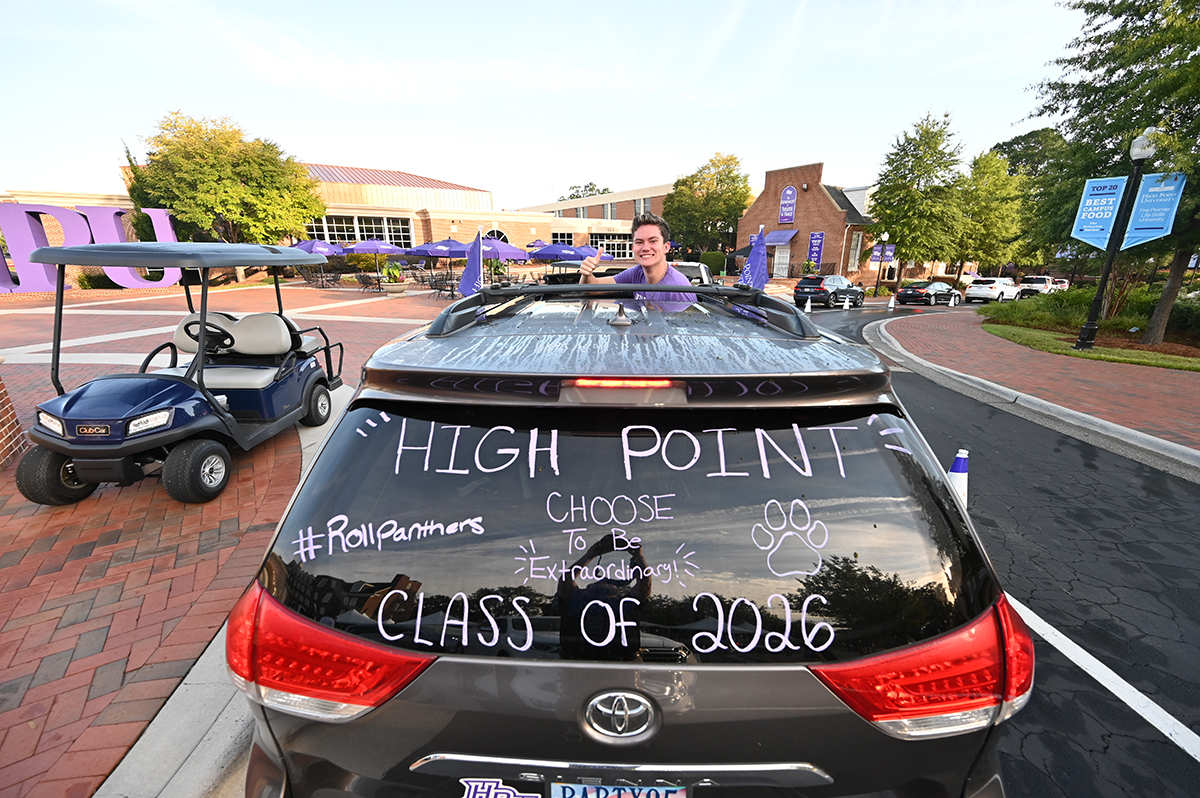 PU
TOP 20
BEST
CAMPUS
FOOD
HIGH POINT
UNIVERSITY
The Premier
Life Skills
University
ClubCar
HIGH POINT
#RollPanthers
CHOOSE
To Be
Extraordinary!
CLASS OF 2026
SIENNA
HPU
PARTY95